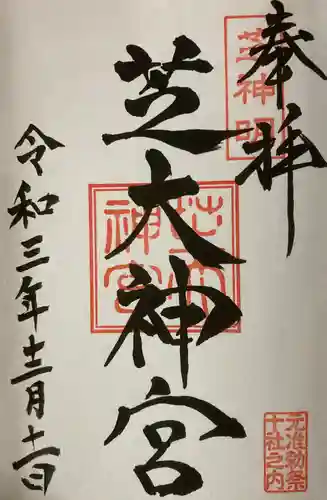 奉拝
芝神明
芝大神宮
芝大神宮
令和三年十二月十一日
元准勅祭
十社之内